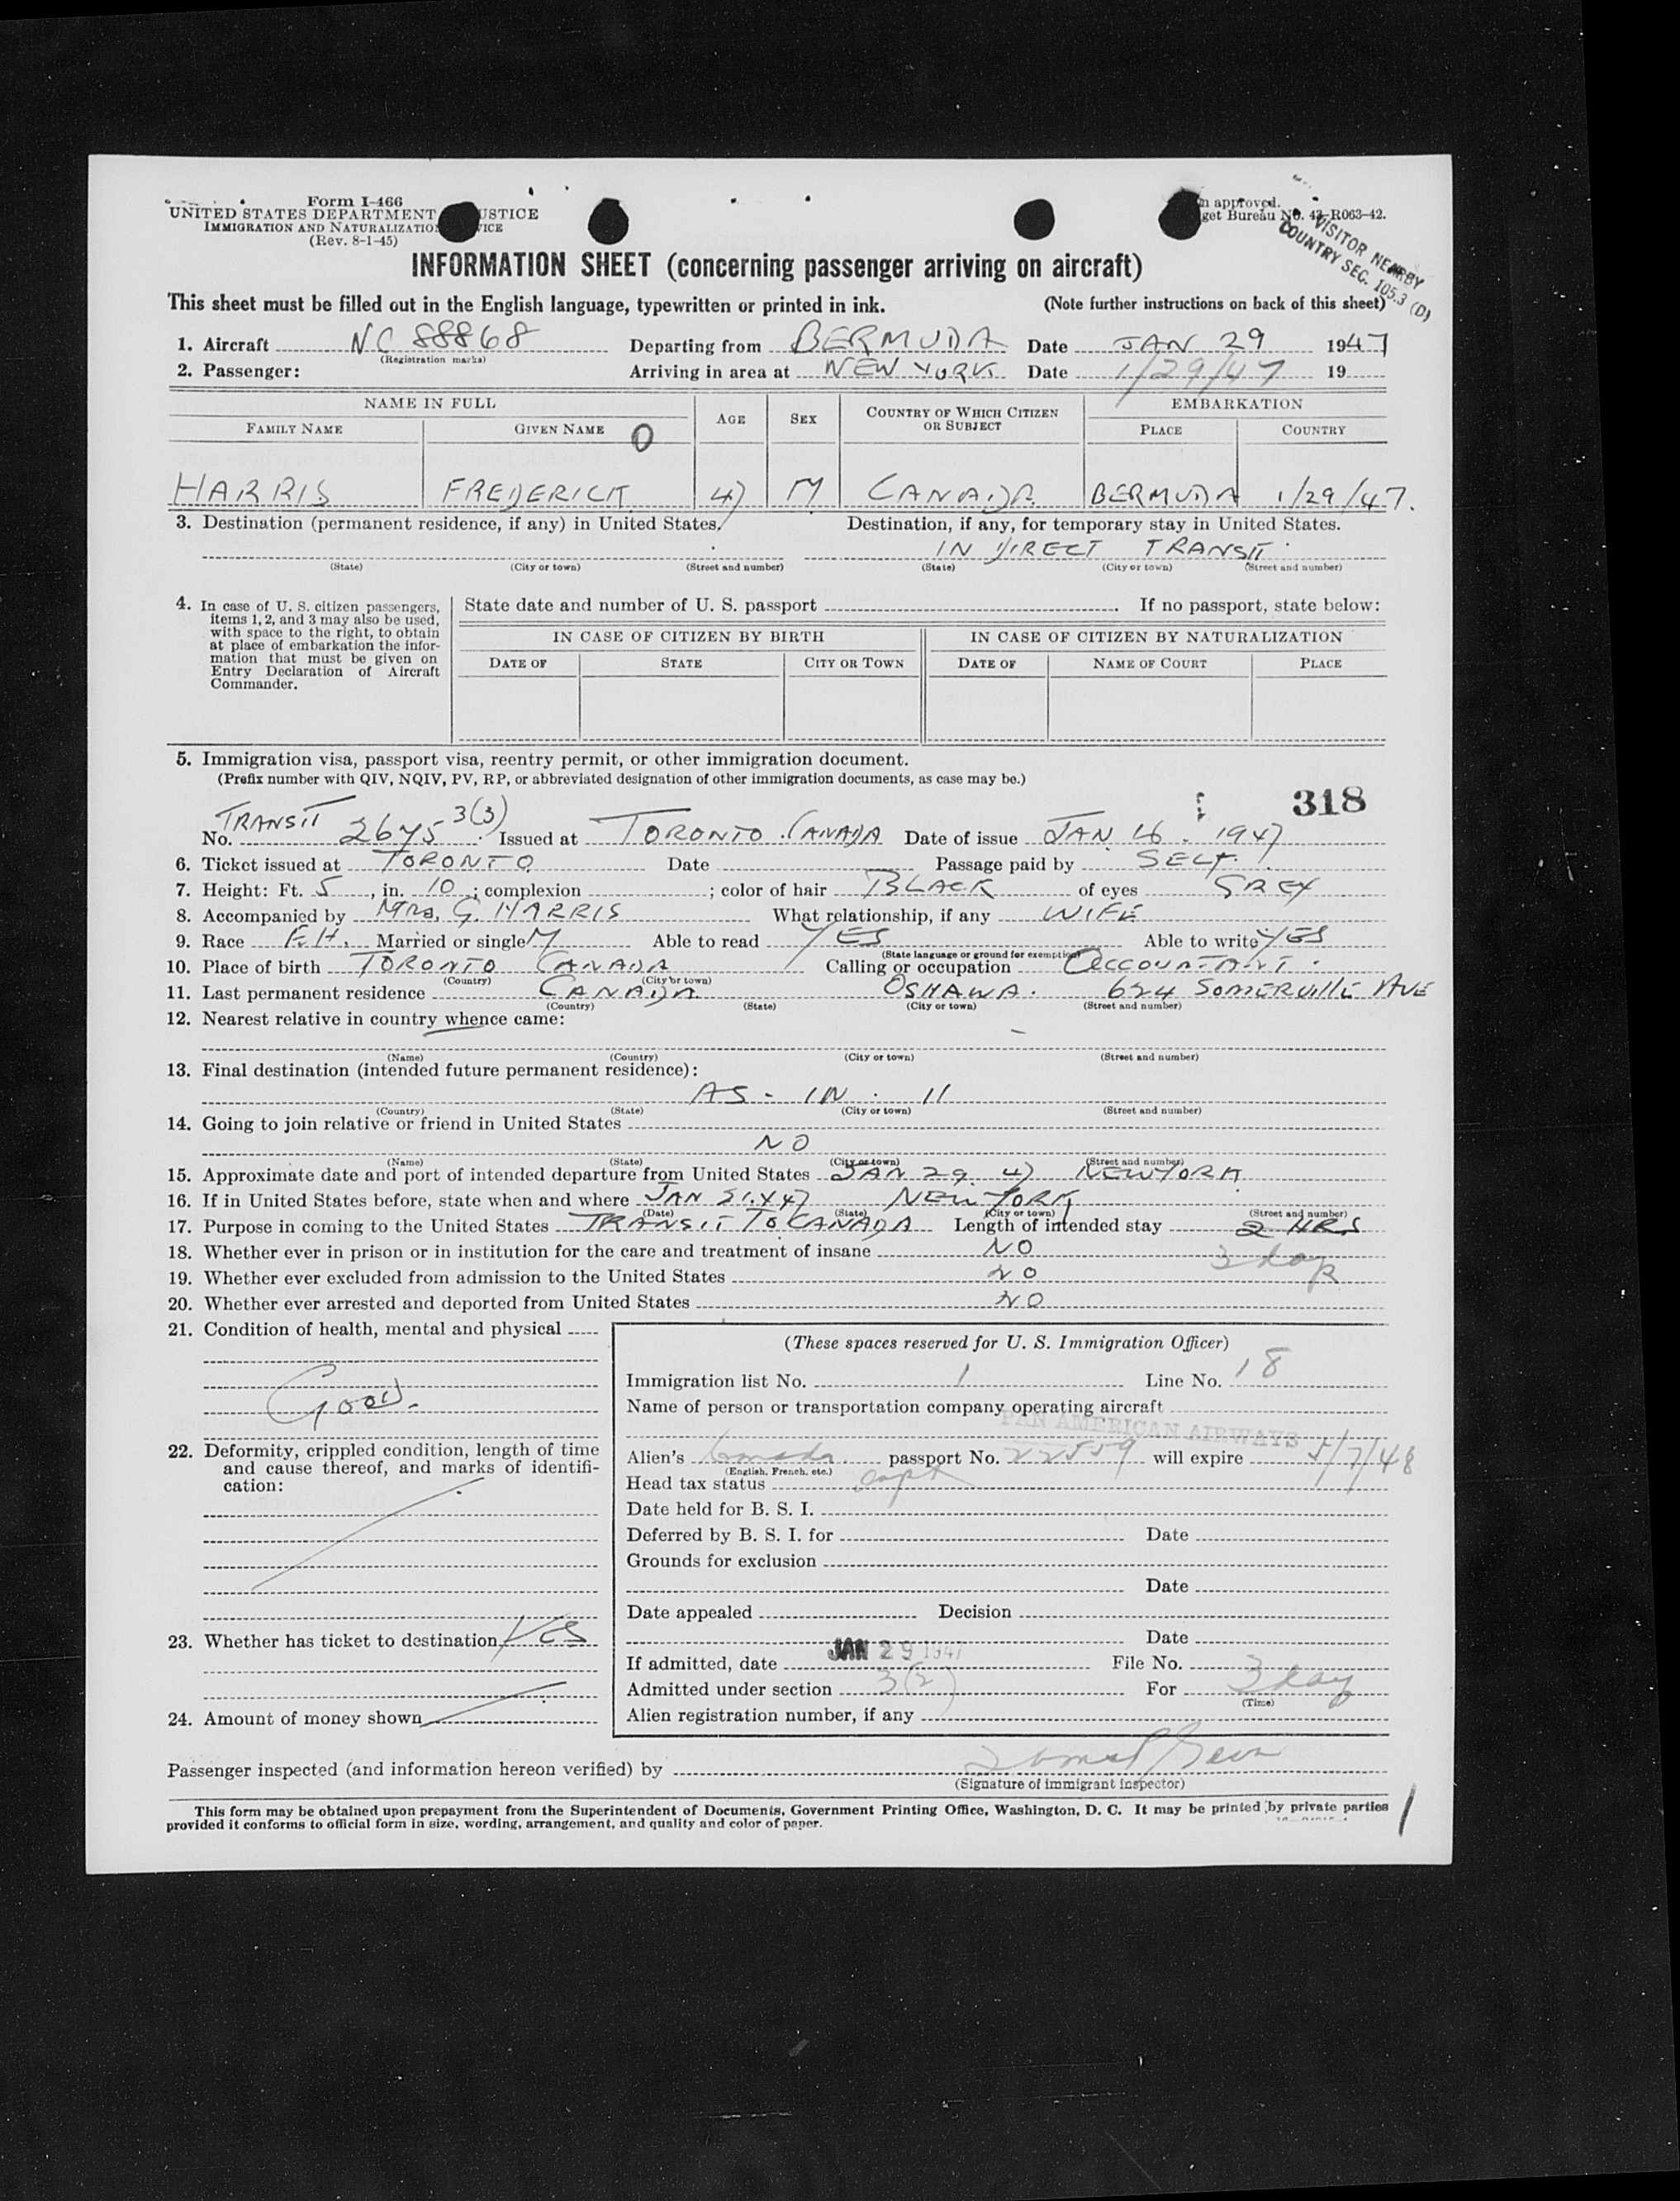 Form I-466
UNITED STATES DEPARTMENT JUSTICE
IMMIGRATION AND NATURALIZATION
(Rev. 8-1-45)
approved.
get Bureau No. 43-R063-42.
VISITOR NEARBY
COUNTRY SEC. 105.3 (D)
INFORMATION SHEET (concerning passenger arriving on aircraft)
This sheet must be filled out in the English language, typewritten or printed in ink. (Note further instructions on back of this sheet)
1. Aircraft NC 88868 Departing from BERMUDA Date JAN 29 1947
(Registration marks)
2. Passenger: Arriving in area at NEW YORK Date 1/29/47 19
NAME IN FULL AGE SEX COUNTRY OF WHICH CITIZEN OR SUBJECT EMBARKATION
FAMILY NAME GIVEN NAME O PLACE COUNTRY
HARRIS FREDERICK 47 M CANADA BERMUDA 1/29/47.
3. Destination (permanent residence, if any) in United States. Destination, if any, for temporary stay in United States.
IN DIRECT TRANSIT
(State) (City or town) (Street and number) (State) (City or town) (Street and number)
4. In case of U. S. citizen passengers, items 1, 2, and 3 may also be used, with space to the right, to obtain at place of embarkation the information that must be given on Entry Declaration of Aircraft Commander.
State date and number of U. S. passport . If no passport, state below:
IN CASE OF CITIZEN BY BIRTH IN CASE OF CITIZEN BY NATURALIZATION
DATE OF STATE CITY OR TOWN DATE OF NAME OF COURT PLACE
5. Immigration visa, passport visa, reentry permit, or other immigration document.
(Prefix number with QIV, NQIV, PV, RP, or abbreviated designation of other immigration documents, as case may be.)
318
TRANSIT 3(3)
No. 2675 Issued at TORONTO CANADA Date of issue JAN 16. 1947
6. Ticket issued at TORONTO Date Passage paid by SELF.
7. Height: Ft. 5, in. 10; complexion ; color of hair BLACK of eyes GREY
8. Accompanied by Mrs. G. HARRIS What relationship, if any WIFE
9. Race Married or single M Able to read YES Able to write YES
(State language or ground for exemption)
10. Place of birth TORONTO CANADA Calling or occupation ACCOUNTANT.
(Country) (City or town)
11. Last permanent residence CANADA OSHAWA. 624 SOMERVILLE AVE
(Country) (State) (City or town) (Street and number)
12. Nearest relative in country whence came:
(Name) (Country) (City or town) (Street and number)
13. Final destination (intended future permanent residence):
AS - IN . 11
(Country) (State) (City or town) (Street and number)
14. Going to join relative or friend in United States
NO
(Name) (State) (City or town) (Street and number)
15. Approximate date and port of intended departure from United States JAN 29. 47 NEW YORK
16. If in United States before, state when and where JAN NEW YORK
(Date) (State) (City or town) (Street and number)
17. Purpose in coming to the United States TRANSIT TO CANADA Length of intended stay 2 HRS
18. Whether ever in prison or in institution for the care and treatment of insane NO
3 days
19. Whether ever excluded from admission to the United States NO
20. Whether ever arrested and deported from United States NO
21. Condition of health, mental and physical
Good.
22. Deformity, crippled condition, length of time and cause thereof, and marks of identification:
23. Whether has ticket to destination YES
24. Amount of money shown
(These spaces reserved for U. S. Immigration Officer)
Immigration list No. 1 Line No. 18
Name of person or transportation company operating aircraft
PAN AMERICAN AIRWAYS
Alien's Canada passport No. 22559 will expire 5/7/48
(English, French, etc.)
Head tax status
Date held for B. S. I.
Deferred by B. S. I. for Date
Grounds for exclusion
Date
Date appealed Decision
Date
If admitted, date JAN 29 1947 File No.
Admitted under section 3(2) For 3 day
(Time)
Alien registration number, if any
Passenger inspected (and information hereon verified) by
(Signature of immigrant inspector)
This form may be obtained upon prepayment from the Superintendent of Documents, Government Printing Office, Washington, D. C. It may be printed by private parties
provided it conforms to official form in size, wording, arrangement, and quality and color of paper.